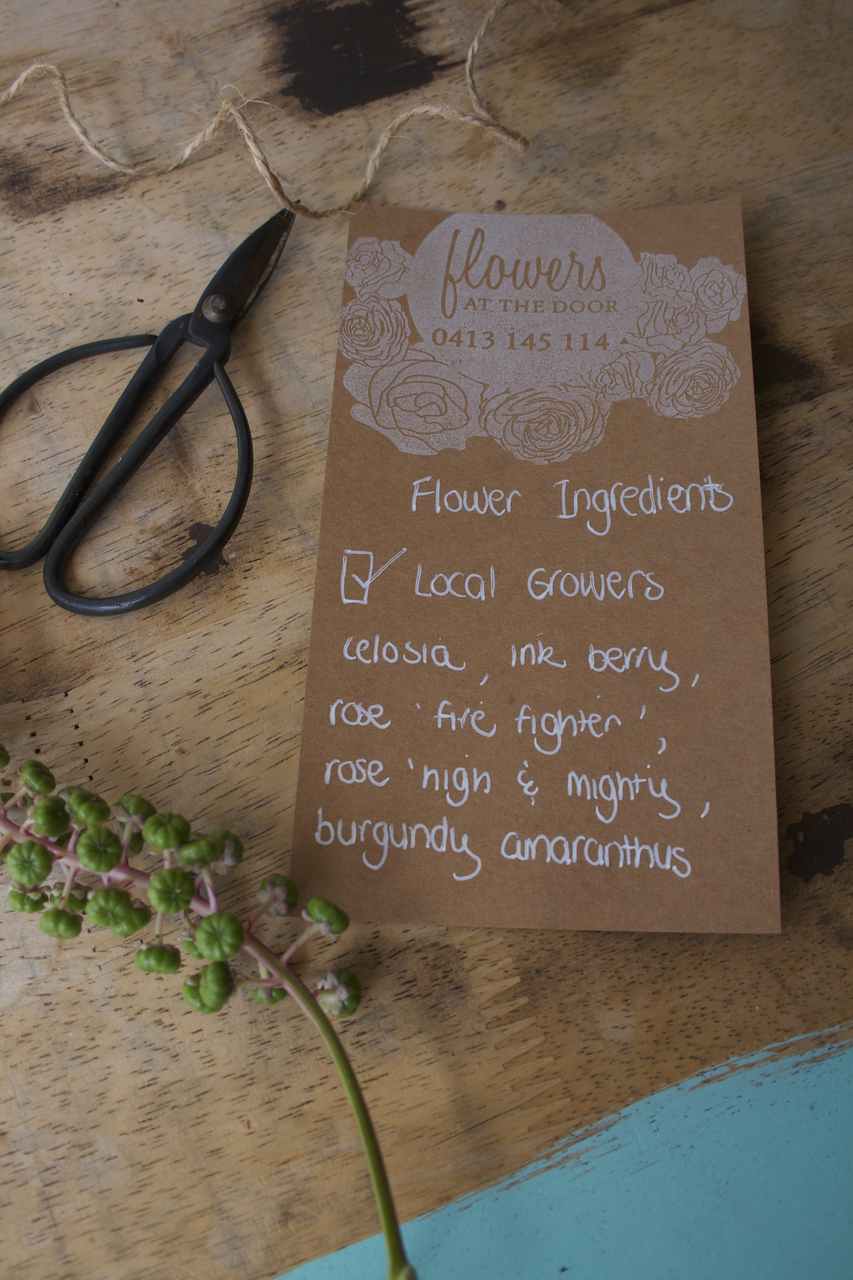 flowers
AT THE DOOR
0413 145 114
Flower Ingredients
☑ Local Growers
celosia, ink berry,
rose 'fire fighter',
rose 'high & mighty,
burgundy amaranthus